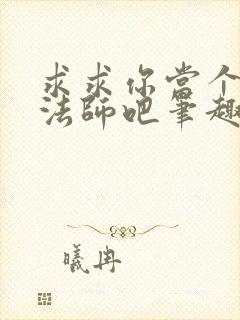 求求你當个
法師吧筆趣
曦冉